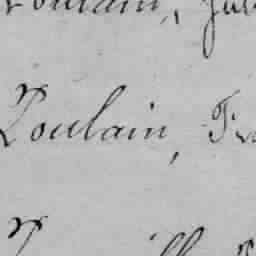 Poulain, Jul
Poulain, Fr